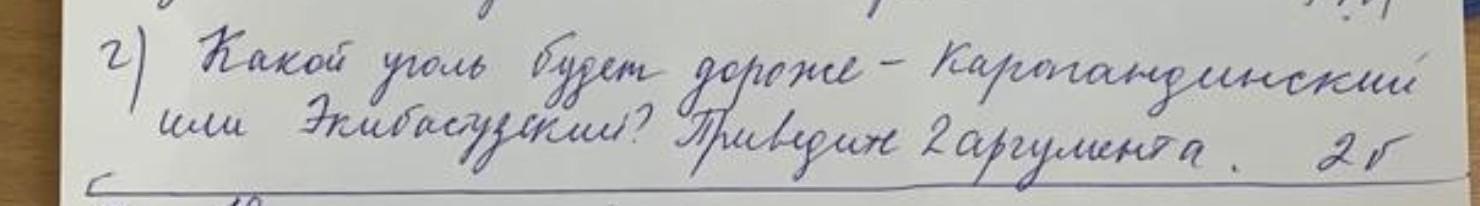 г) Какой уголь будет дороже - Карагандинский
или Экибастузский? Приведите 2 аргумента. 2б